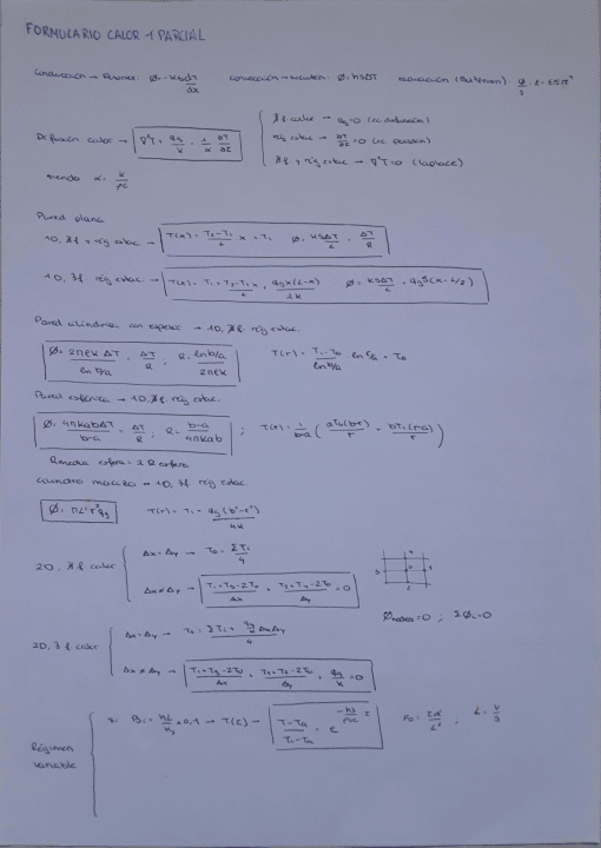 FORMULARIO CALOR 1 PARCIAL
Conducción → Fourier: Ø = -KS dT/dx convección → Newton: Ø = hSΔT radiación (Boltzmann): Ø/S = εσT⁴
Difusión calor → ∇²T + qg/k = 1/α ∂T/∂τ
∄ f. calor → qg = 0 (ec difusión)
rég estac → ∂T/∂τ = 0 (ec poisson)
∄ f. y rég estac → ∇²T = 0 (laplace)
siendo α = k/ρc
Pared plana
1D, ∄ f y rég estac → T(x) = T2-T1/L x + T1 Ø = KSΔT/L = ΔT/R
1D, ∃ f. rég estac. → T(x) = T1 + T2-T1/L x + qg x(L-x)/2k Ø = KSΔT/L + qg S(x-L/2)
Pared cilíndrica con espesor → 1D, ∄ f. rég estac.
Ø = 2πLK·ΔT/ln b/a = ΔT/R ; R = ln b/a/2πLK T(r) = T1-T0/ln b/a ln r/a + T0
Pared esférica → 1D, ∄ f. rég estac.
Ø = 4πkabΔT/b-a = ΔT/R ; R = b-a/4πkab ; T(r) = 1/b-a ( aT0(b-r)/r + bT1(r-a)/r )
R media esfera = 2 R esfera
Cilindro macizo → 1D, ∃ f rég estac.
Ø = πLr²qg T(r) = T1 + qg(b²-r²)/4k
2D, ∄ f calor
Δx = Δy → T0 = ΣTi/4
Δx ≠ Δy → T1+T3-2T0/Δx + T2+T4-2T0/Δy = 0
Ønodos = 0 ; ΣØi = 0
2D, ∃ f. calor
Δx = Δy → T0 = ΣTi + qg/k ΔxΔy/4
Δx ≠ Δy → T1+T3-2T0/Δx + T2+T4-2T0/Δy + qg/k = 0
Régimen variable
si Bi = hL/Ks < 0,1 → T(τ) → T-Ta/Ti-Ta = e^(-hS/ρVC τ) Fo = τα/L² , L = V/S